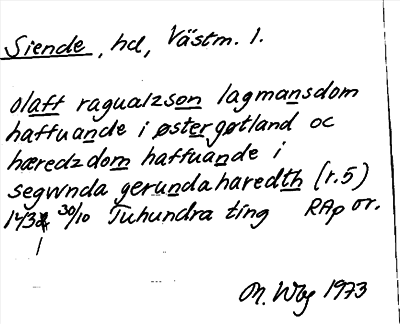 Siende, hd, Västm. 1.
olaff ragualzson lagmansdom
haffuande i østergøtland oc
hæredzdom haffuande i
segwnda gerundaharedth (r.5)
143 30/10 Tuhundra ting RAp or.
1
M. Wbg 1973